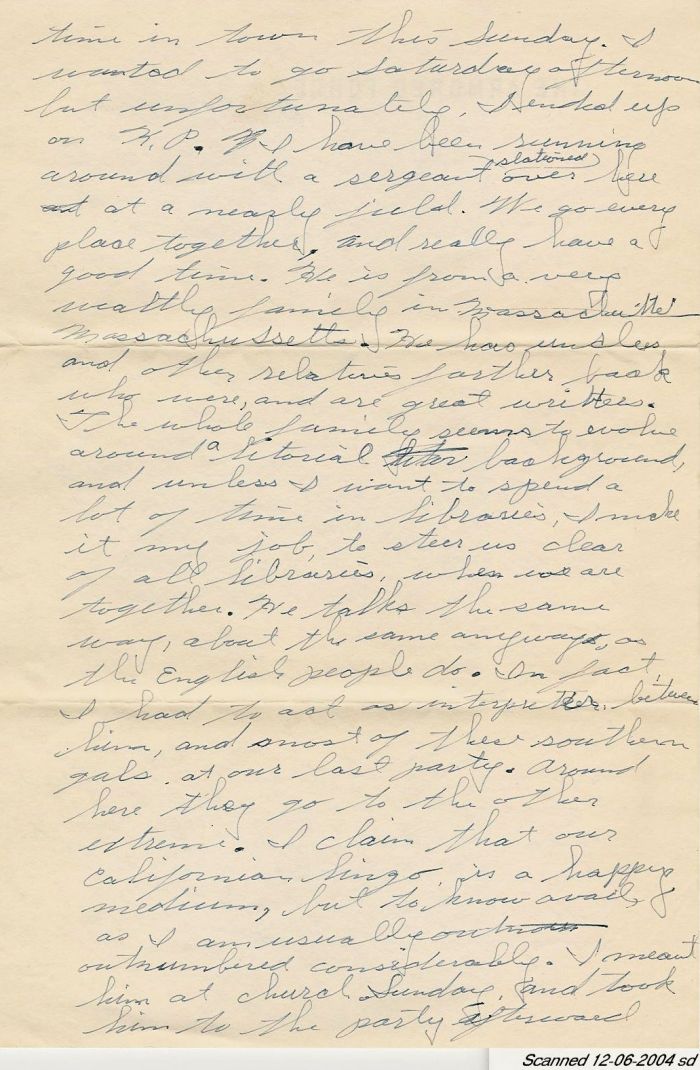 time in town this Sunday. I
wanted to go Saturday afternoon
but unfortunately, I ended up
on K. P. I have been running
around with a sergeant stationed over here
at at a nearly field. We go every
place together, and really have a
good time. He is from a very
wealthy family in Massachusette
Massachussetts. He has uncles
and other relatives farther back
who were, and are great writers.
The whole family seems to evolve
around a litorial litar background,
and unless I want to spend a
lot of time in libraries, I make
it my job, to steer us clear
of all libraries, when we are
together. He talks the same
way, about the same anyways, as
the English people do. In fact,
I had to act as interpreter between
him, and most of these southern
gals at our last party. Around
here they go to the other
extreme. I claim that our
Californian lingo is a happy
medium, but to know avail,
as I am usually outnum
outnumbered considerably. I meant
him at church Sunday, and took
him to the party afterward
Scanned 12-06-2004 sd